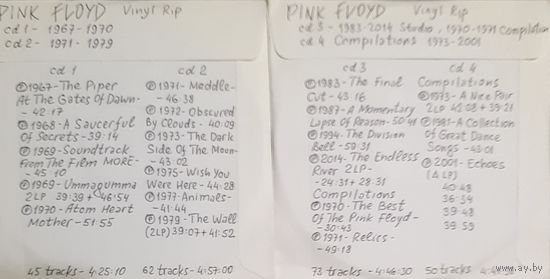 PINK FLOYD Vinyl Rip
cd 1 - 1967-1970
cd 2 - 1971 - 1979
cd 1
℗1967-The Piper
At The Gates Of Dawn-
- 42:17
℗1968-A Saucerful
Of Secrets-39:14
℗1969-Soundtrack
From The Film MORE-
- 45:10
℗1969-Ummagumma
2LP 39:39+46:54
℗1970-Atom Heart
Mother-51:55
45 tracks - 4:25:10
cd 2
℗1971-Meddle-
- 46:38
℗1972-Obscured
By Clouds - 40:09
℗1973-The Dark
Side Of The Moon-
- 43:02
℗1975-Wish You
Were Here - 44:28
℗1977-Animals-
- 41:44
℗1979-The Wall
(2LP) 39:07+41:52
62 tracks - 4:57:00
PINK FLOYD Vinyl Rip
cd 3 - 1983-2014 Studio, 1970-1971 Compilation
cd 4 Compilations 1973-2001
cd 3
℗1983-The Final
Cut-43:16
℗1987-A Momentary
Lapse Of Reason-50:41
℗1994-The Division
Bell-59:31
℗2014-The Endless
River 2LP-
-24:31+28:31
Compilations
℗1970-The Best
Of The Pink Floyd-
-30:43
℗1971-Relics-
-49:18
73 tracks - 4:46:30
cd 4
Compilations
℗1973-A Nice Pair
2LP 42:08+39:21
℗1981-A Collection
Of Great Dance
Songs-43:01
℗2001-Echoes
(4LP)
40:48
36:34
39:48
39:59
ay.by